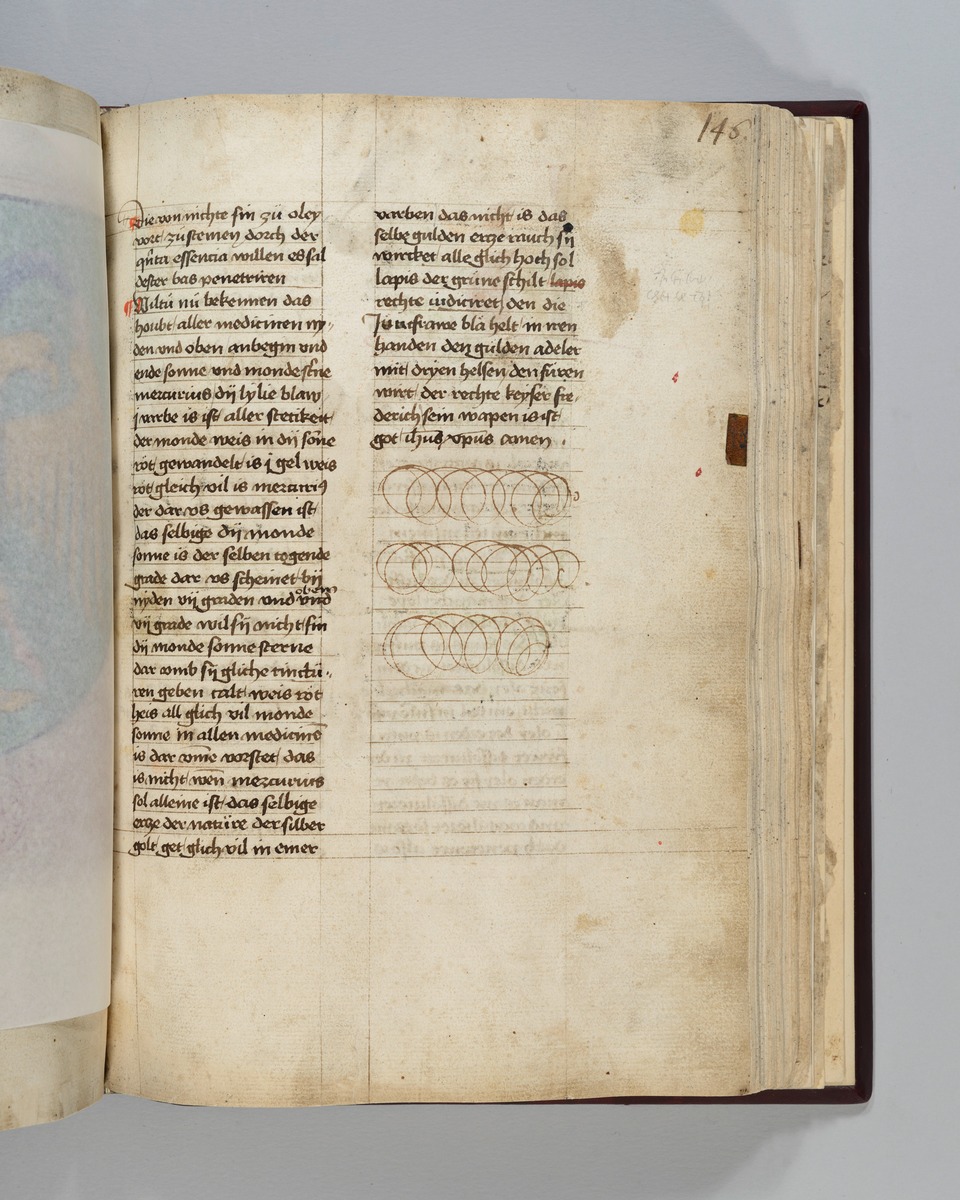 146.
Die von nichte sin zü oley
wort zu steinen dorch der
qīnta essencia willen es sal
dester bas penetriren
Wiltu nü bekennen das
houbt aller medicinen ny-
den vnd oben anbegin vnd
ende sonne vnd monde st'ne
mercurius dÿ lylie blaw
varbe is ist aller stetikeit
der monde weis in dÿ sōne
rot gewandelt is gel weis
rot gleich vil is mercurius
der dar vs gewassen ist
das selbige dÿ monde
sonne is der selben togende
grade dar vs scheinet vij
nyden vij graden vnd oben vnd
vij grade wil sÿ nicht sin
dÿ monde sonne sterne
dar vomb sÿ gliche tinctü-
ren geben calt weis rot
heis all glich vil monde
sonne in allen medicinē
is dar vm̄e vorstet das
is nicht wen mercurius
sol alleine ist das selbige
ercze der natüre der silber
golt get glich vil in einer
varben das nicht is das
selbe gulden ercze rauch sÿ
wircket alle glich hoch sol
lapis der grüne schilt lapis
rechte iudiciret den die
Jūncfrawe bla helt in iren
handen den gülden adeler
mit dryen helsen den füren
wirt der rechte keyser fre-
derich sein wapen is ist
got ih̄us xp̄us amen .